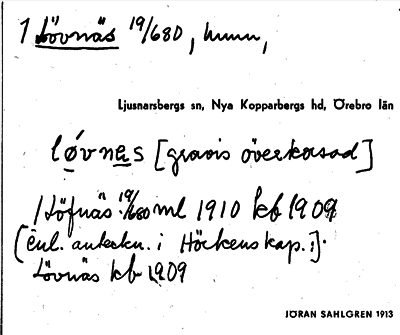 1 Lövnäs 19/680, hmn,
Ljusnarsbergs sn, Nya Kopparbergs hd, Örebro län
løvnes [gravis överkorsad]
1 Löfnäs 19/680 ml 1910 kb 1909
[enl. anteckn. i Höckenskap.:].
Lövnäs kb 1909
JÖRAN SAHLGREN 1913